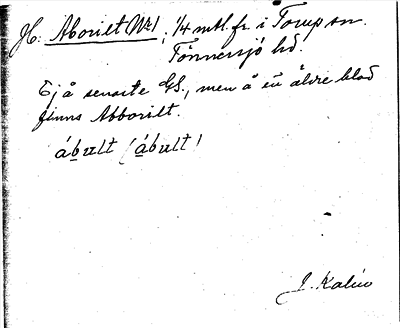 Jb. Aborilt No 1, 1/4 mtl. fr. i Torup sn.
Tönnersjö hd.
Ej å senaste GS., men å en äldre blad
finns Abborilt.
ábult (ábult)
J. Kalén